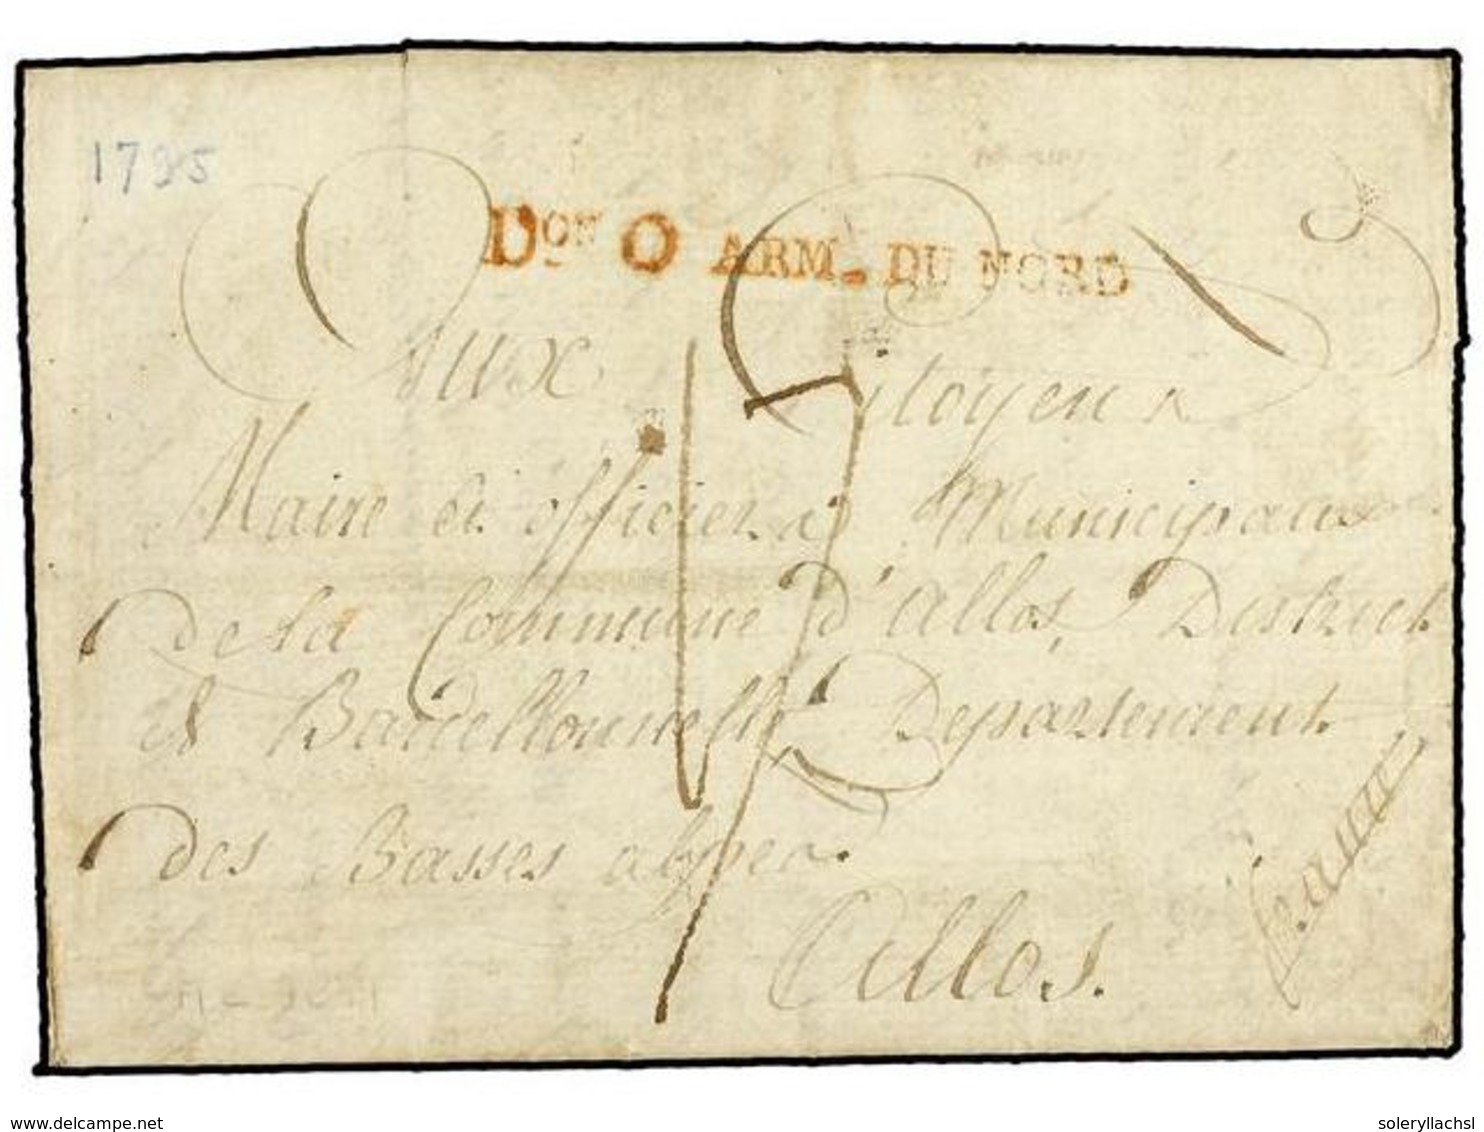 1795
Don O ARM. DU NORD
Aux Citoyens
Maire et officiers Municipaux
de la Commune d'allos, District
de Barcellonnette Departement
des Basses alpes.
Allos.
17
delcampe.net
soleryllachsl